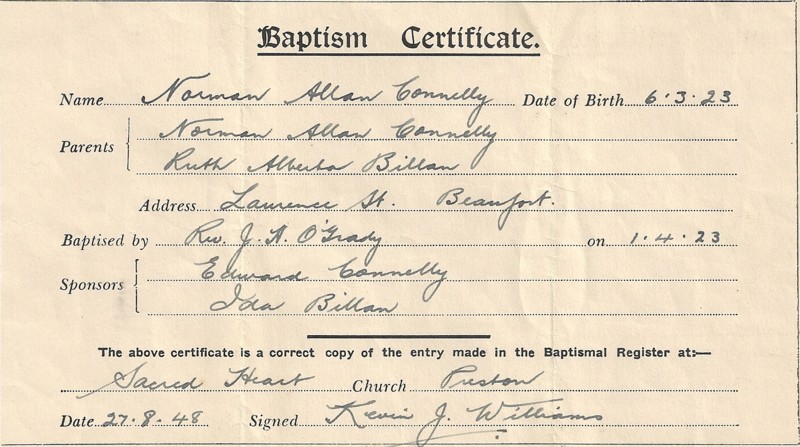 Baptism Certificate.
Name Norman Allan Connelly Date of Birth 6.3.23
Parents Norman Allan Connelly
Ruth Alberta Billan
Address Laurence St. Beaufort.
Baptised by Rev. J. A. O'Grady on 1.4.23
Sponsors Edward Connelly
Ida Billan
The above certificate is a correct copy of the entry made in the Baptismal Register at:—
Sacred Heart Church Preston
Date 27.8.48 Signed Kevin J. Williams